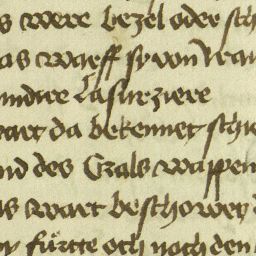 s were bezel oder sch
as warff sy von
lasurziere
wart da bekennet schi
nd des Grals wappen
s wart beschowet
fürte och noch den